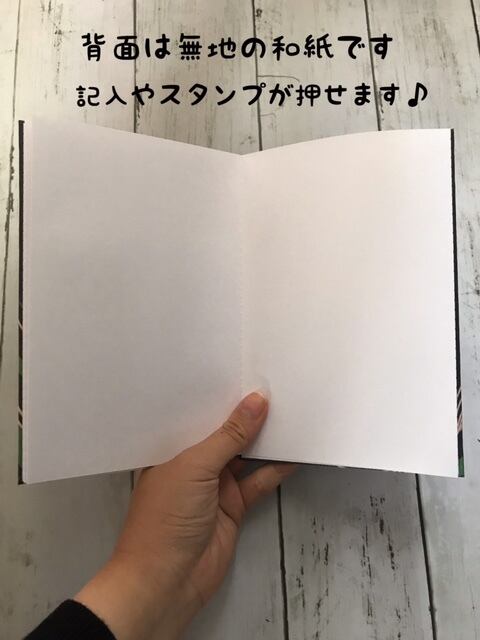 背面は無地の和紙です
記入やスタンプが押せます♪